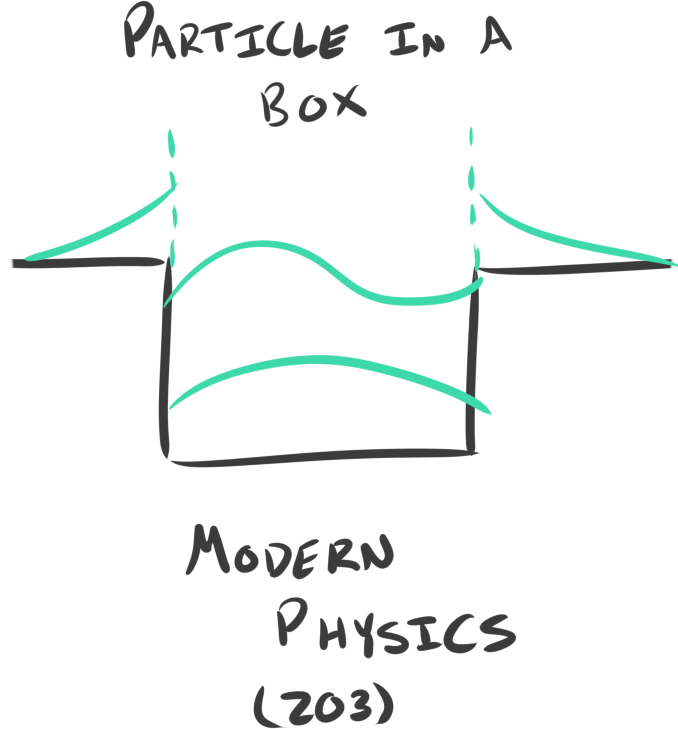 PARTICLE IN A
BOX
MODERN
PHYSICS
(203)